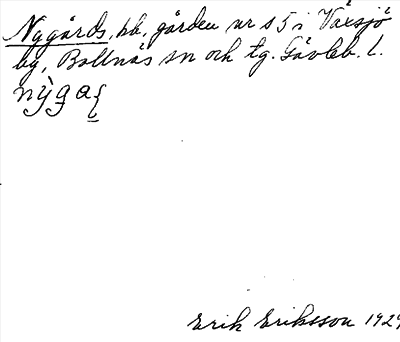 Nygårds, hb., gården nr s 5 i Växsjö
by, Bollnäs sn och tg. Gävleb. l.
nỳga
Erik Eriksson 1929